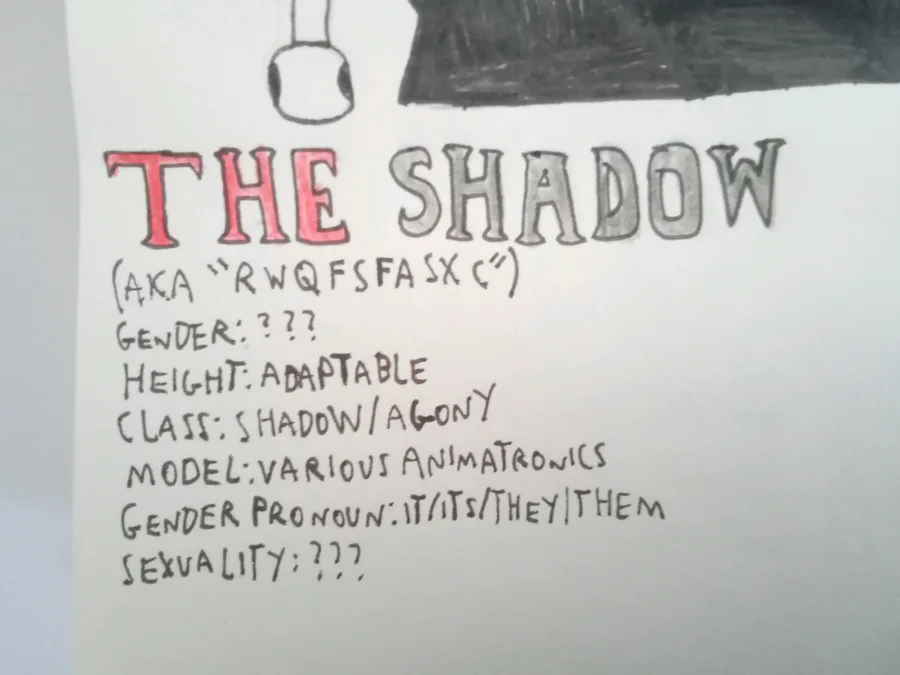 THE SHADOW
(AKA "RWQFSFASXC")
GENDER: ???
HEIGHT: ADAPTABLE
CLASS: SHADOW/AGONY
MODEL: VARIOUS ANIMATRONICS
GENDER PRONOUN: IT/ITS/THEY|THEM
SEXUALITY: ???